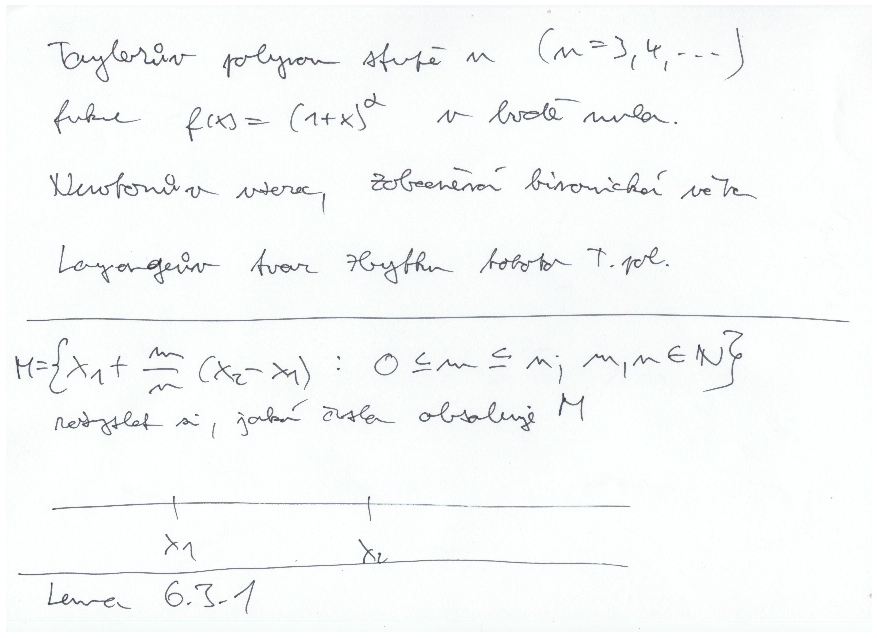 Taylorův polynom stupně n (n=3,4,...)
funkce f(x) = (1+x)^α v bodě nula.
Newtonův vzorec, zobecněná binomická věta
Lagrangeův tvar zbytku tohoto T. pol.
M={x₁+ m/n (x₂-x₁) : 0 ≤ m ≤ n; m,n ∈ N}
rozmyslet si, jaká čísla obsahuje M
x₁ x₂
Lemma 6.3.1